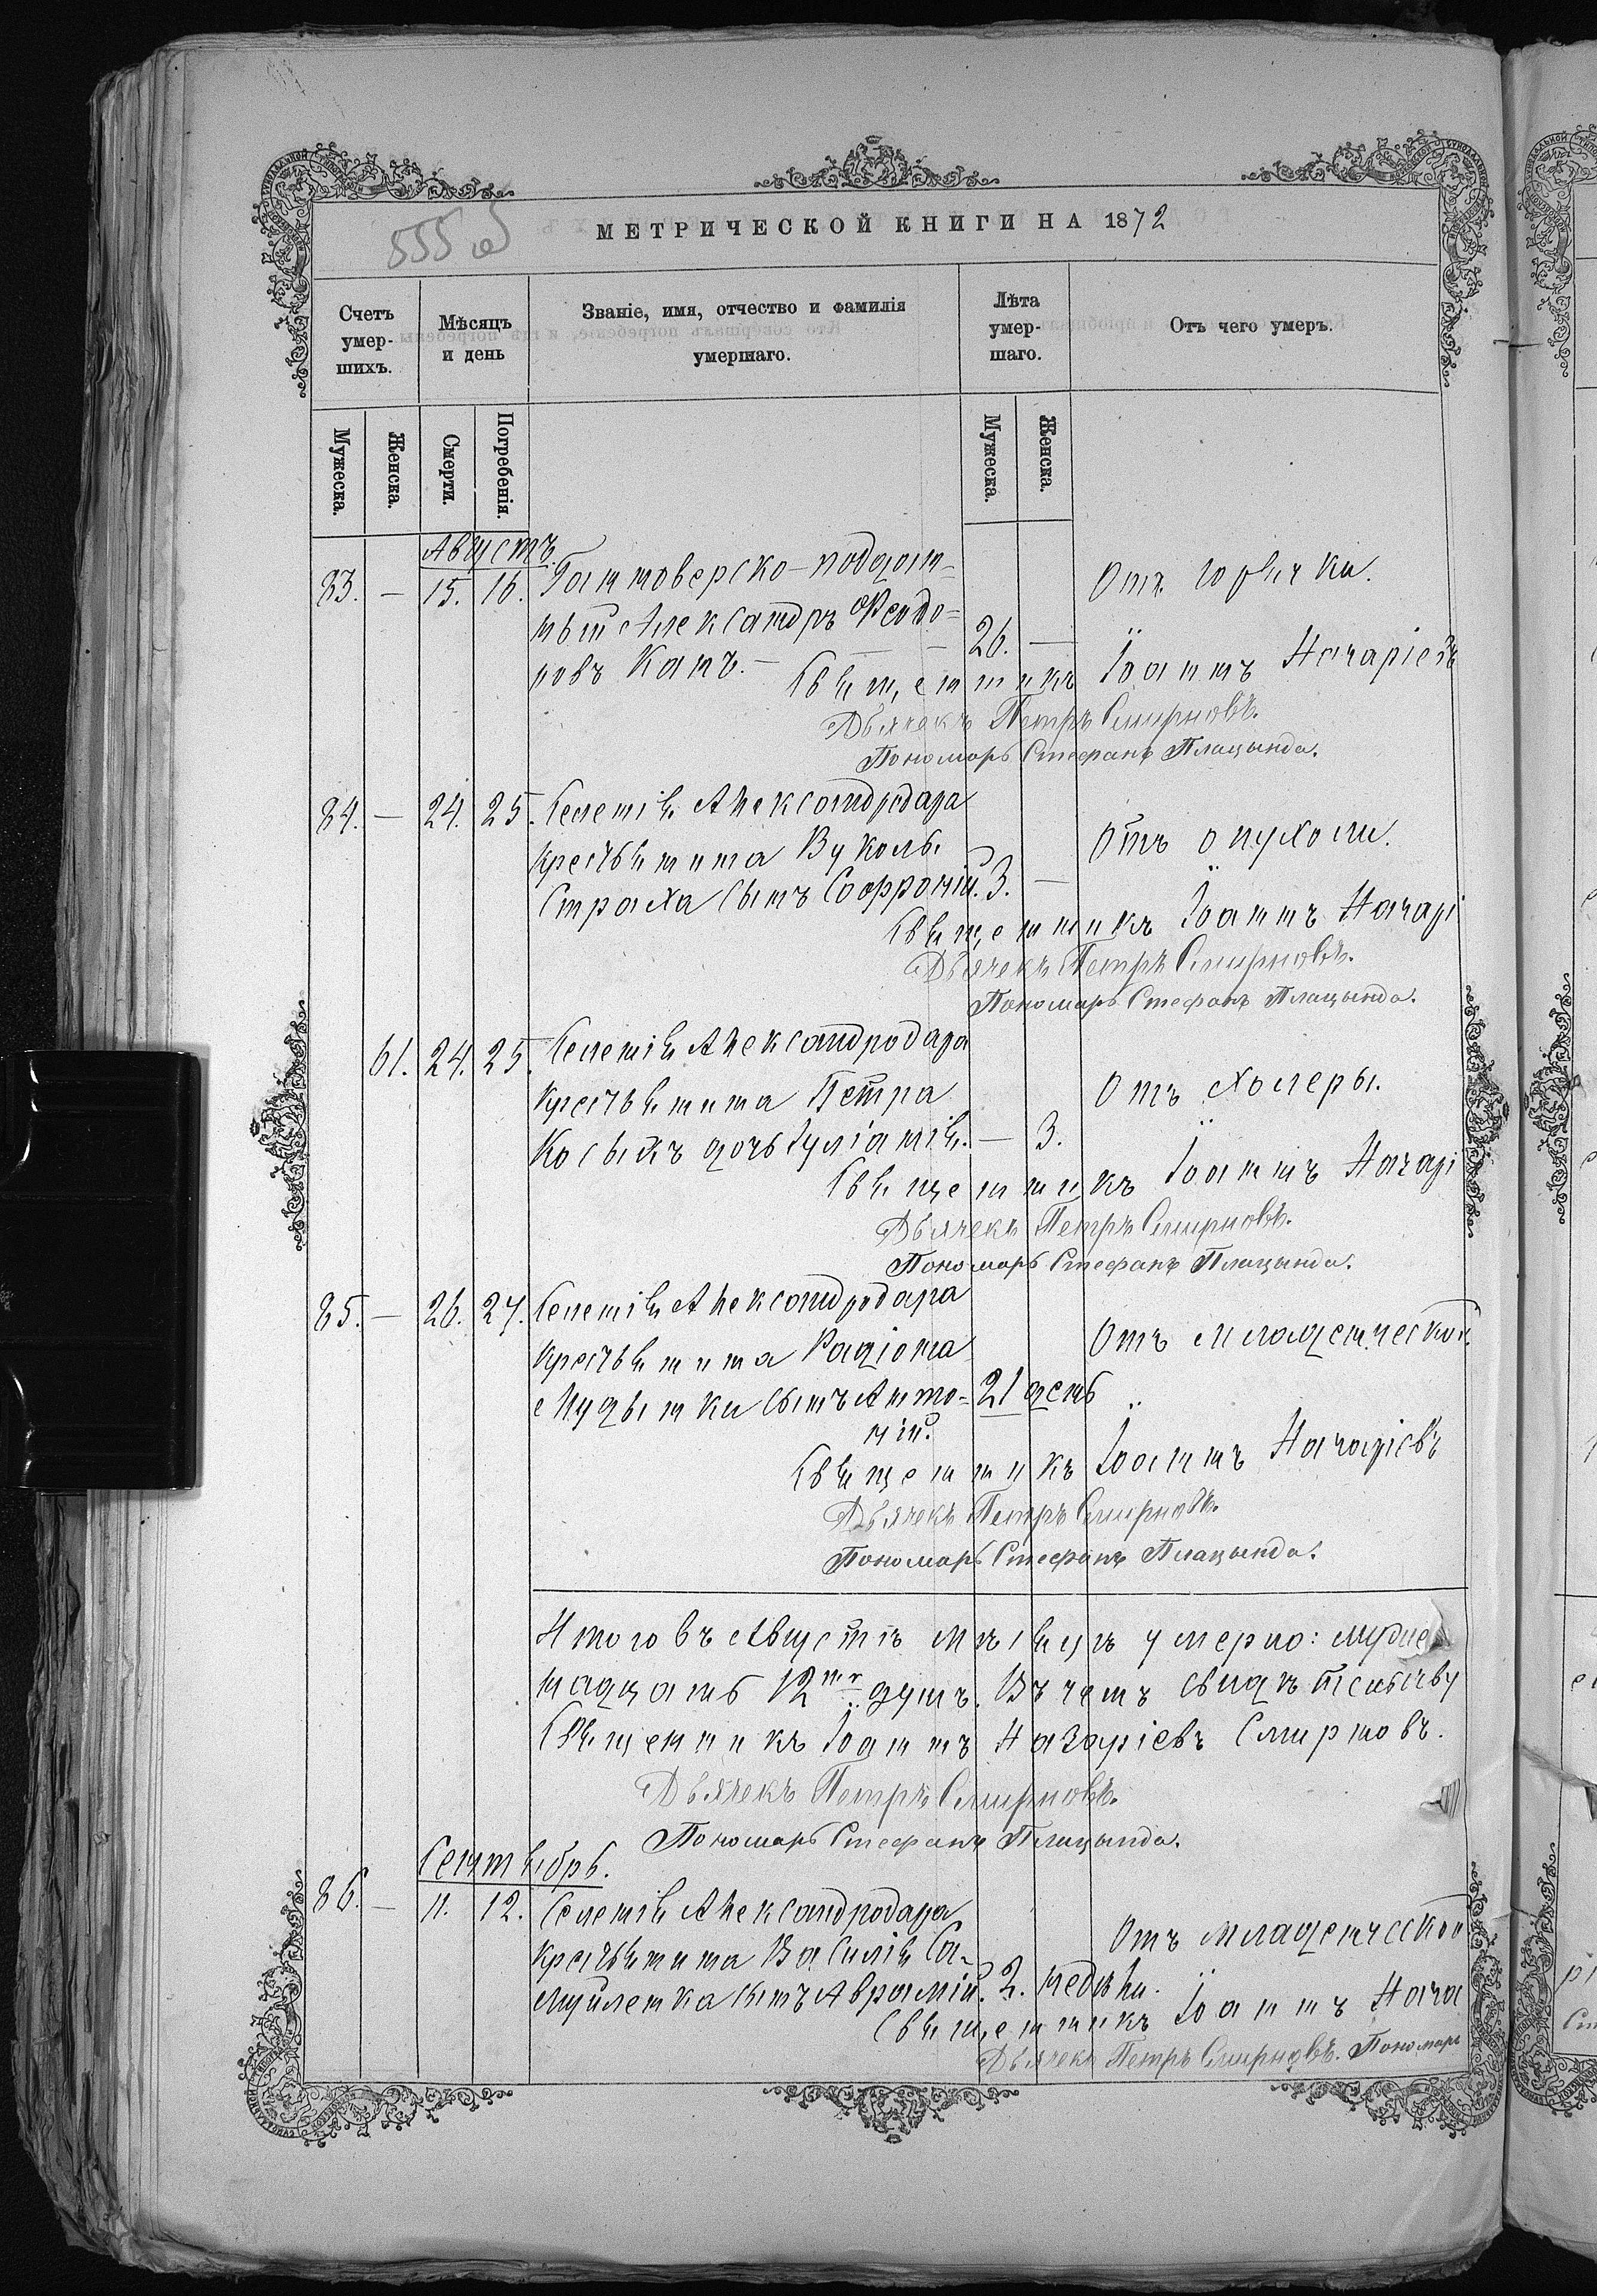 555 об
МЕТРИЧЕСКОЙ КНИГИ НА 1872
Счетъ умер-шихъ.
Мѣсяцъ и день
Званіе, имя, отчество и фамилія умершаго.
Лѣта умер-шаго.
Отъ чего умеръ.
Мужеска.
Женска.
Смерти.
Погребенія.
Мужеска.
Женска.
Августъ
83. — 15. 16. Ганноверско-поддан-
Отъ горячки.
ный Александръ Фeодо-
ровъ Капъ. — 26. —
Священникъ Іоаннъ Назаріевъ
Дьячекъ Петръ Смирновъ.
Пономарь Стефанъ Плацында.
84. — 24. 25. Селенія Александродара
Отъ опухоли.
крестьянина Вукола
Страха сынъ Софроній. 3. —
Священникъ Іоаннъ Назарі
Дьячекъ Петръ Смирновъ.
Пономарь Стефанъ Плацында.
61. 24. 25. Селенія Александродара
Отъ холеры.
крестьянина Петра
Косыхъ дочь Іуліанія. — 3.
Священникъ Іоаннъ Назарі
Дьячекъ Петръ Смирновъ.
Пономарь Стефанъ Плацында.
85. — 26. 27. Селенія Александродара
Отъ младенческой.
крестьянина Радіона
сынъ Анто- 21 день
ній.
Священникъ Іоаннъ Назаріевъ
Дьячекъ Петръ Смирновъ.
Пономарь Стефанъ Плацында.
Итого въ Августѣ мѣсяцѣ умерло:
12 душъ. Въ чемъ свидѣтельству
Священникъ Іоаннъ Назаріевъ Смирновъ.
Дьячекъ Петръ Смирновъ.
Пономарь Стефанъ Плацында.
Сентябрь.
86. — 11. 12. Селенія Александродара
Отъ младенческой
крестьянина Василія Са-
муйленка сынъ Аврамій. 2. недѣли.
Священникъ Іоаннъ Наза
Дьячекъ Петръ Смирновъ. Пономарь